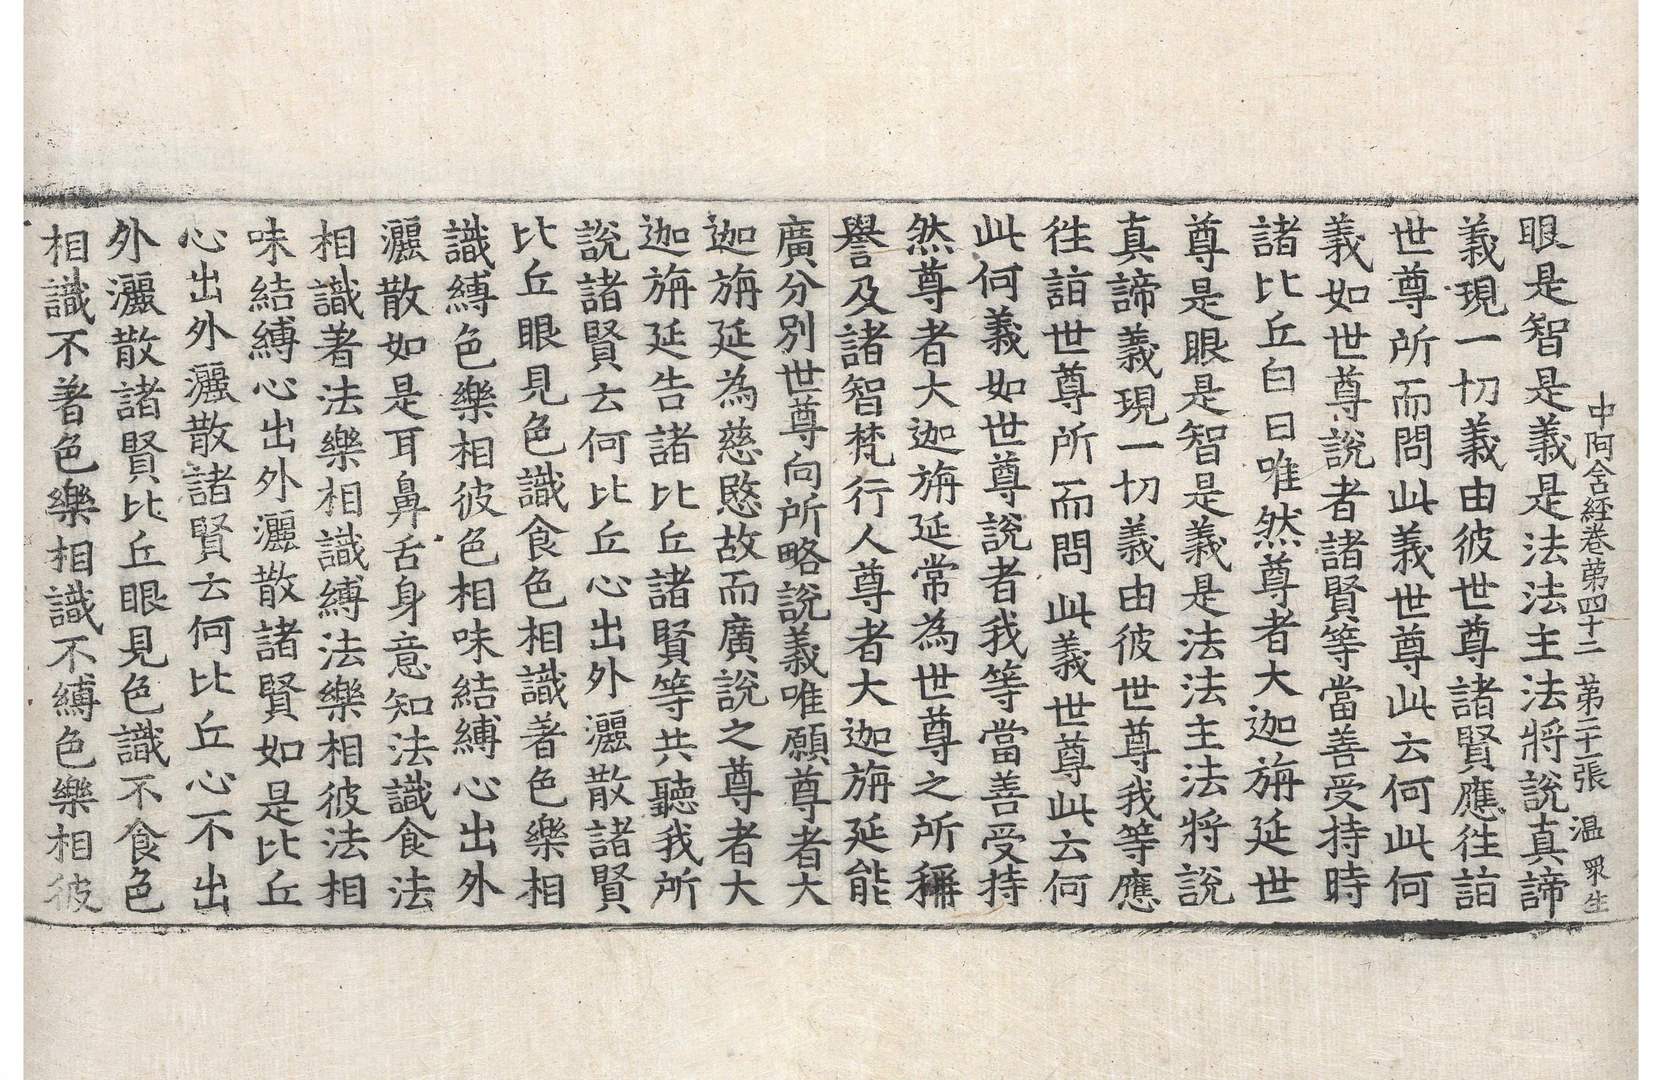 中阿含経巻第四十二 第二十二張 温 眾生
眼是智是義是法法主法將說真諦
義現一切義由彼世尊諸賢應往詣
世尊所而問此義世尊此云何此何
義如世尊說者諸賢等當善受持時
諸比丘白曰唯然尊者大迦旃延世
尊是眼是智是義是法法主法將說
真諦義現一切義由彼世尊我等應
往詣世尊所而問此義世尊此云何
此何義如世尊說者我等當善受持
然尊者大迦旃延常為世尊之所稱
譽及諸智梵行人尊者大迦旃延能
廣分別世尊向所略說義唯願尊者大
迦旃延為慈愍故而廣說之尊者大
迦旃延告諸比丘諸賢等共聽我所
說諸賢云何比丘心出外灑散諸賢
比丘眼見色識食色相識著色樂相
識縛色樂相彼色相味結縛心出外
灑散如是耳鼻舌身意知法識食法
相識著法樂相識縛法樂相彼法相
味結縛心出外灑散諸賢如是比丘
心出外灑散諸賢云何比丘心不出
外灑散諸賢比丘眼見色識不食色
相識不著色樂相識不縛色樂相彼